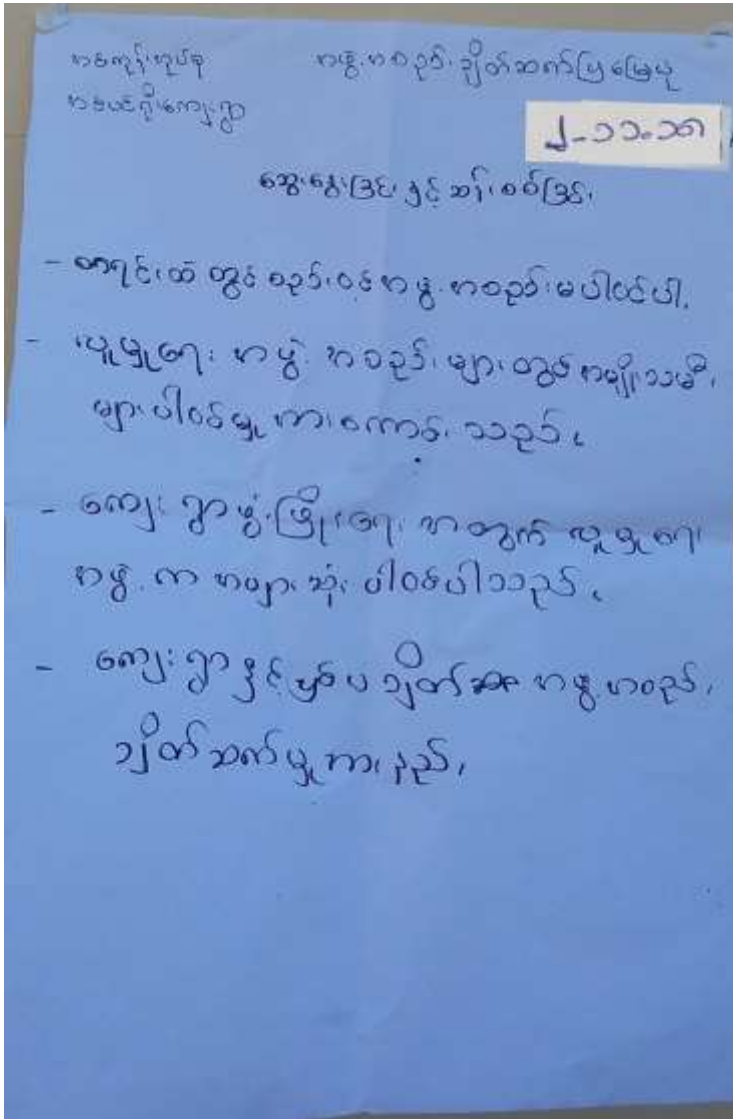 အဖွဲ့အစည်းချိတ်ဆက်ပြမြေပုံ
ဆွေးနွေးခြင်းနှင့်ဆန်းစစ်ခြင်း
- စာရင်းထဲတွင်စည်းဝင်အဖွဲ့အစည်းမပါဝင်ပါ.
- လူမှုရေးအဖွဲ့အစည်းများတွင်အမျိုးသမီး
များပါဝင်မှုကားကောင်းသည်.
- ကျေးရွာဖွံ့ဖြိုးရေးအတွက်လူမှုရေး
အဖွဲ့ကအများဆုံးပါဝင်ပါသည်.
- ကျေးရွာနှင့်ပြင်ပချိတ် အဖွဲ့အစည်း
ချိတ်ဆက်မှုကားနည်း